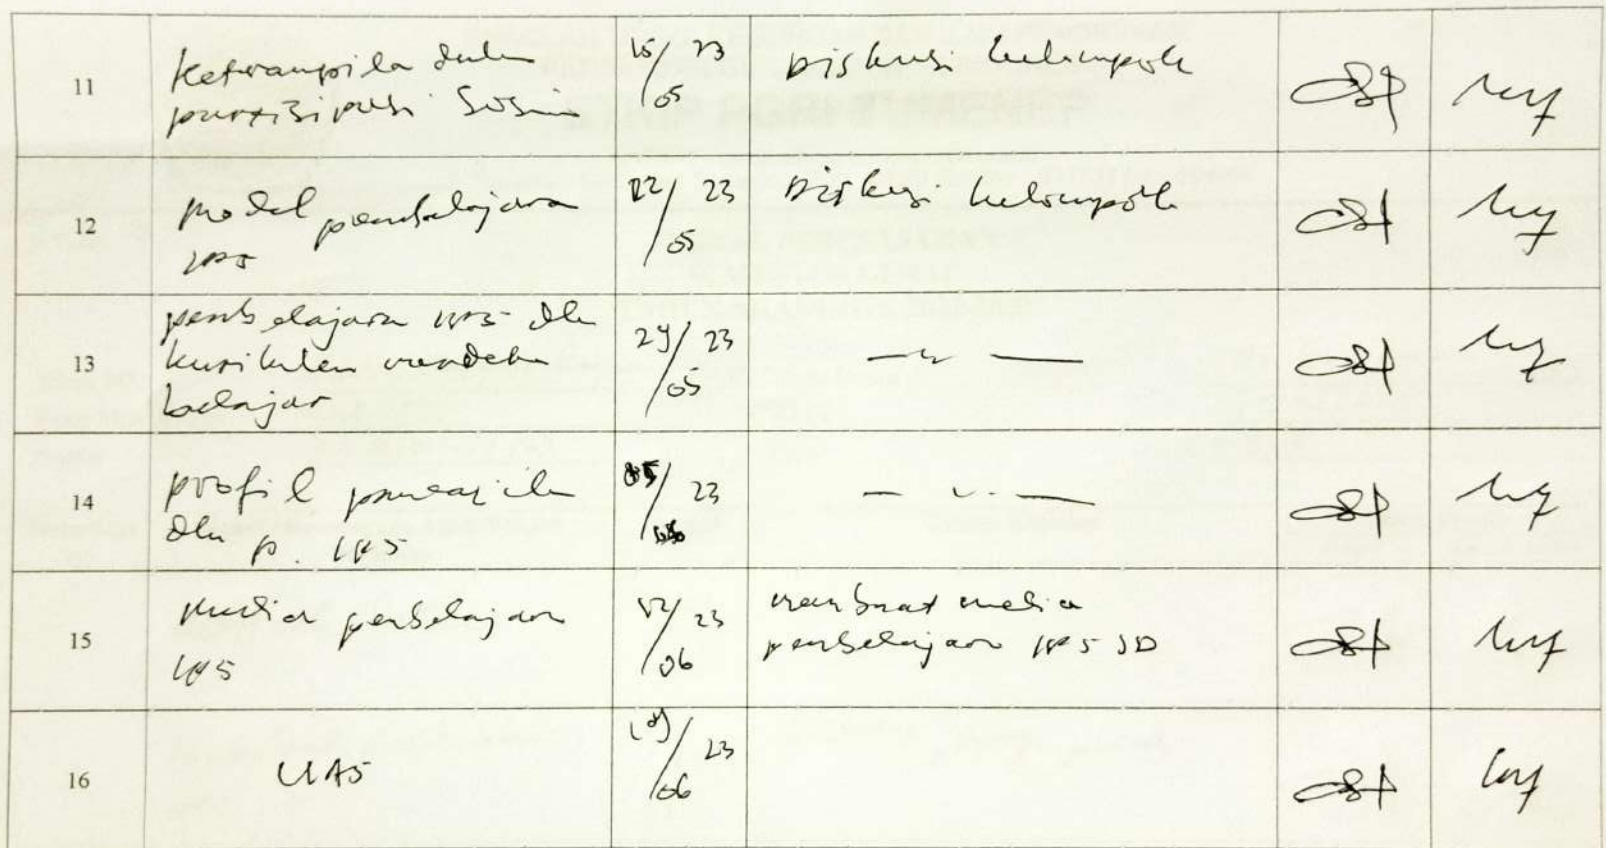 11
Keterampila dalm
partisipasi Sosi
15/05 23
Diskusi kelompok
12
Model pembelajara
IPS
22/05 23
Diskusi kelompok
13
pembelajara IPS dlm
kurikulum merdeka
belajar
29/05 23
14
profil
dlm p. IPS
23
15
Media pembelajaran
IPS
23
06
membuat media
pembelajaran IPS SD
16
UAS
23
06